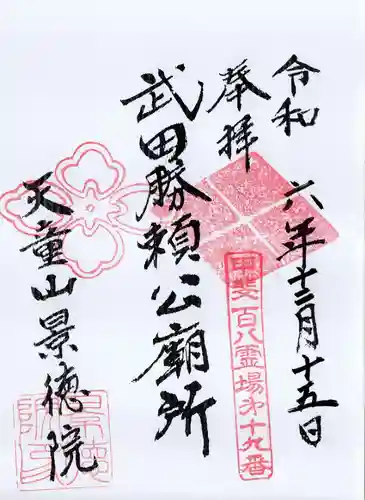 令和六年十二月十五日
奉拝
甲斐百八霊場第十九番
武田勝頼公廟所
天童山景徳院